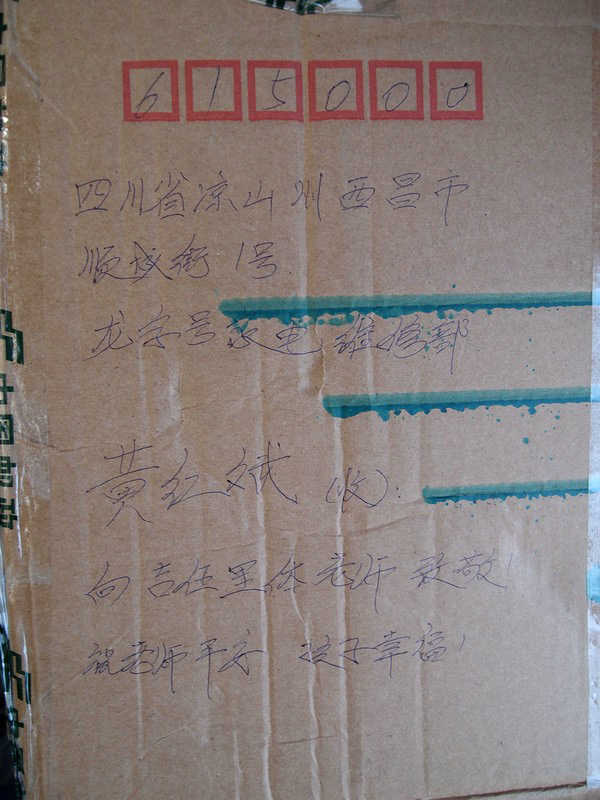 615000
四川省凉山州西昌市
顺城街1号
龙字号家电维修部
黄红斌(收).
向吉伍里体老师致敬!
祝老师平安 孩子幸福!
中国邮政